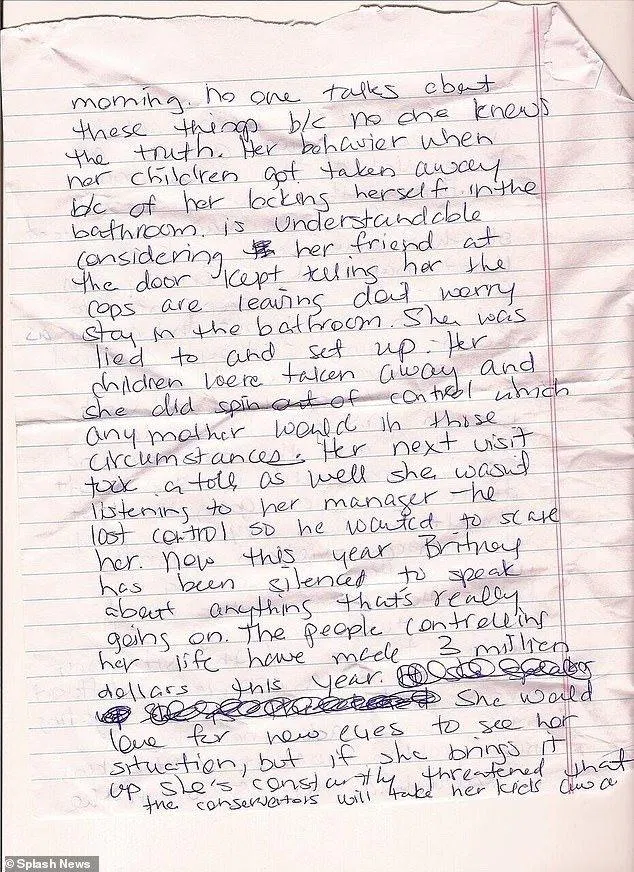 morning. no one talks about
these things b/c no one knows
the truth. Her behavior when
her children got taken away
b/c of her locking herself in the
bathroom. is understandable
considering her friend at
the door kept telling her the
cops are leaving don't worry
stay in the bathroom. She was
lied to and set up. Her
children were taken away and
she did spin out of control which
any mother would in those
circumstances. Her next visit
took a toll, as well she wasn't
listening to her manager - he
lost control so he wanted to scare
her. Now this year Britney
has been silenced to speak
about anything that's really
going on. The people controlling
her life have made 3 million
dollars this year.
She would
love for new eyes to see her
situation, but if she brings it
up she's constantly threatened that
the conservators will take her kids awa
© Splash News